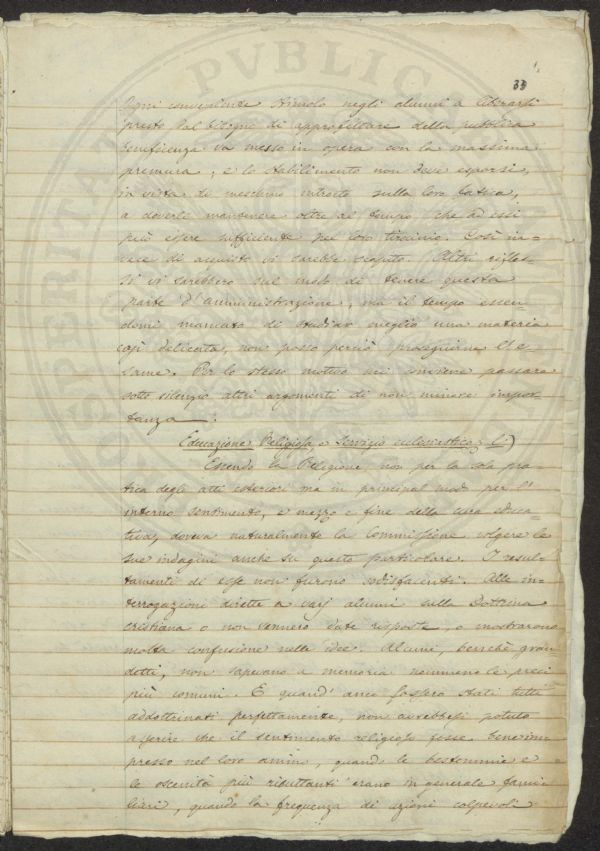 33
Ogni conveniente stimolo negli alunni a liberarsi
presto dal bisogno di approfittare della pubblica
beneficenza va messo in opera con la massima
premura; e lo stabilimento non deve esporsi,
in vista di meschino introito sulla loro fatica,
a doverli mantenere oltre al tempo che ad essi
può essere sufficiente pel loro tirocinio. Così in=
vece di acquisto vi sarebbe scapito. Altri rifles=
si vi sarebbero sul modo di tenere questa
parte d'amministrazione, ma il tempo essen=
domi mancato di studiar meglio una materia
così delicata, non posso perciò proseguirne l'e=
same. Per lo stesso motivo mi conviene passare
sotto silenzio altri argomenti di non minore impor=
tanza.
Educazione Religiosa e Servizio ecclesiastico
Essendo la Religione, non per la sola pra=
tica degli atti esteriori ma in principal modo per l'
interno sentimento, e mezzo e fine della cura educa=
tiva, doveva naturalmente la Commissione volgere le
sue indagini anche su questo particolare. I resul=
tamenti di esse non furono sodisfacenti. Alle in=
terrogazioni dirette a varj alunni sulla Dottrina
cristiana o non vennero date risposte, o mostrarono
molta confusione nelle idee. Alcuni, benchè gran=
detti, non sapevano a memoria nemmeno le preci
più comuni. E quand' anco fossero stati tutti
addottrinati perfettamente, non avrebbesi potuto
asserire che il sentimento religioso fosse bene im=
presso nel loro animo, quando le bestemmie e
le oscenità più ributtanti erano in generale fami=
liari, quando la frequenza di azioni colpevoli